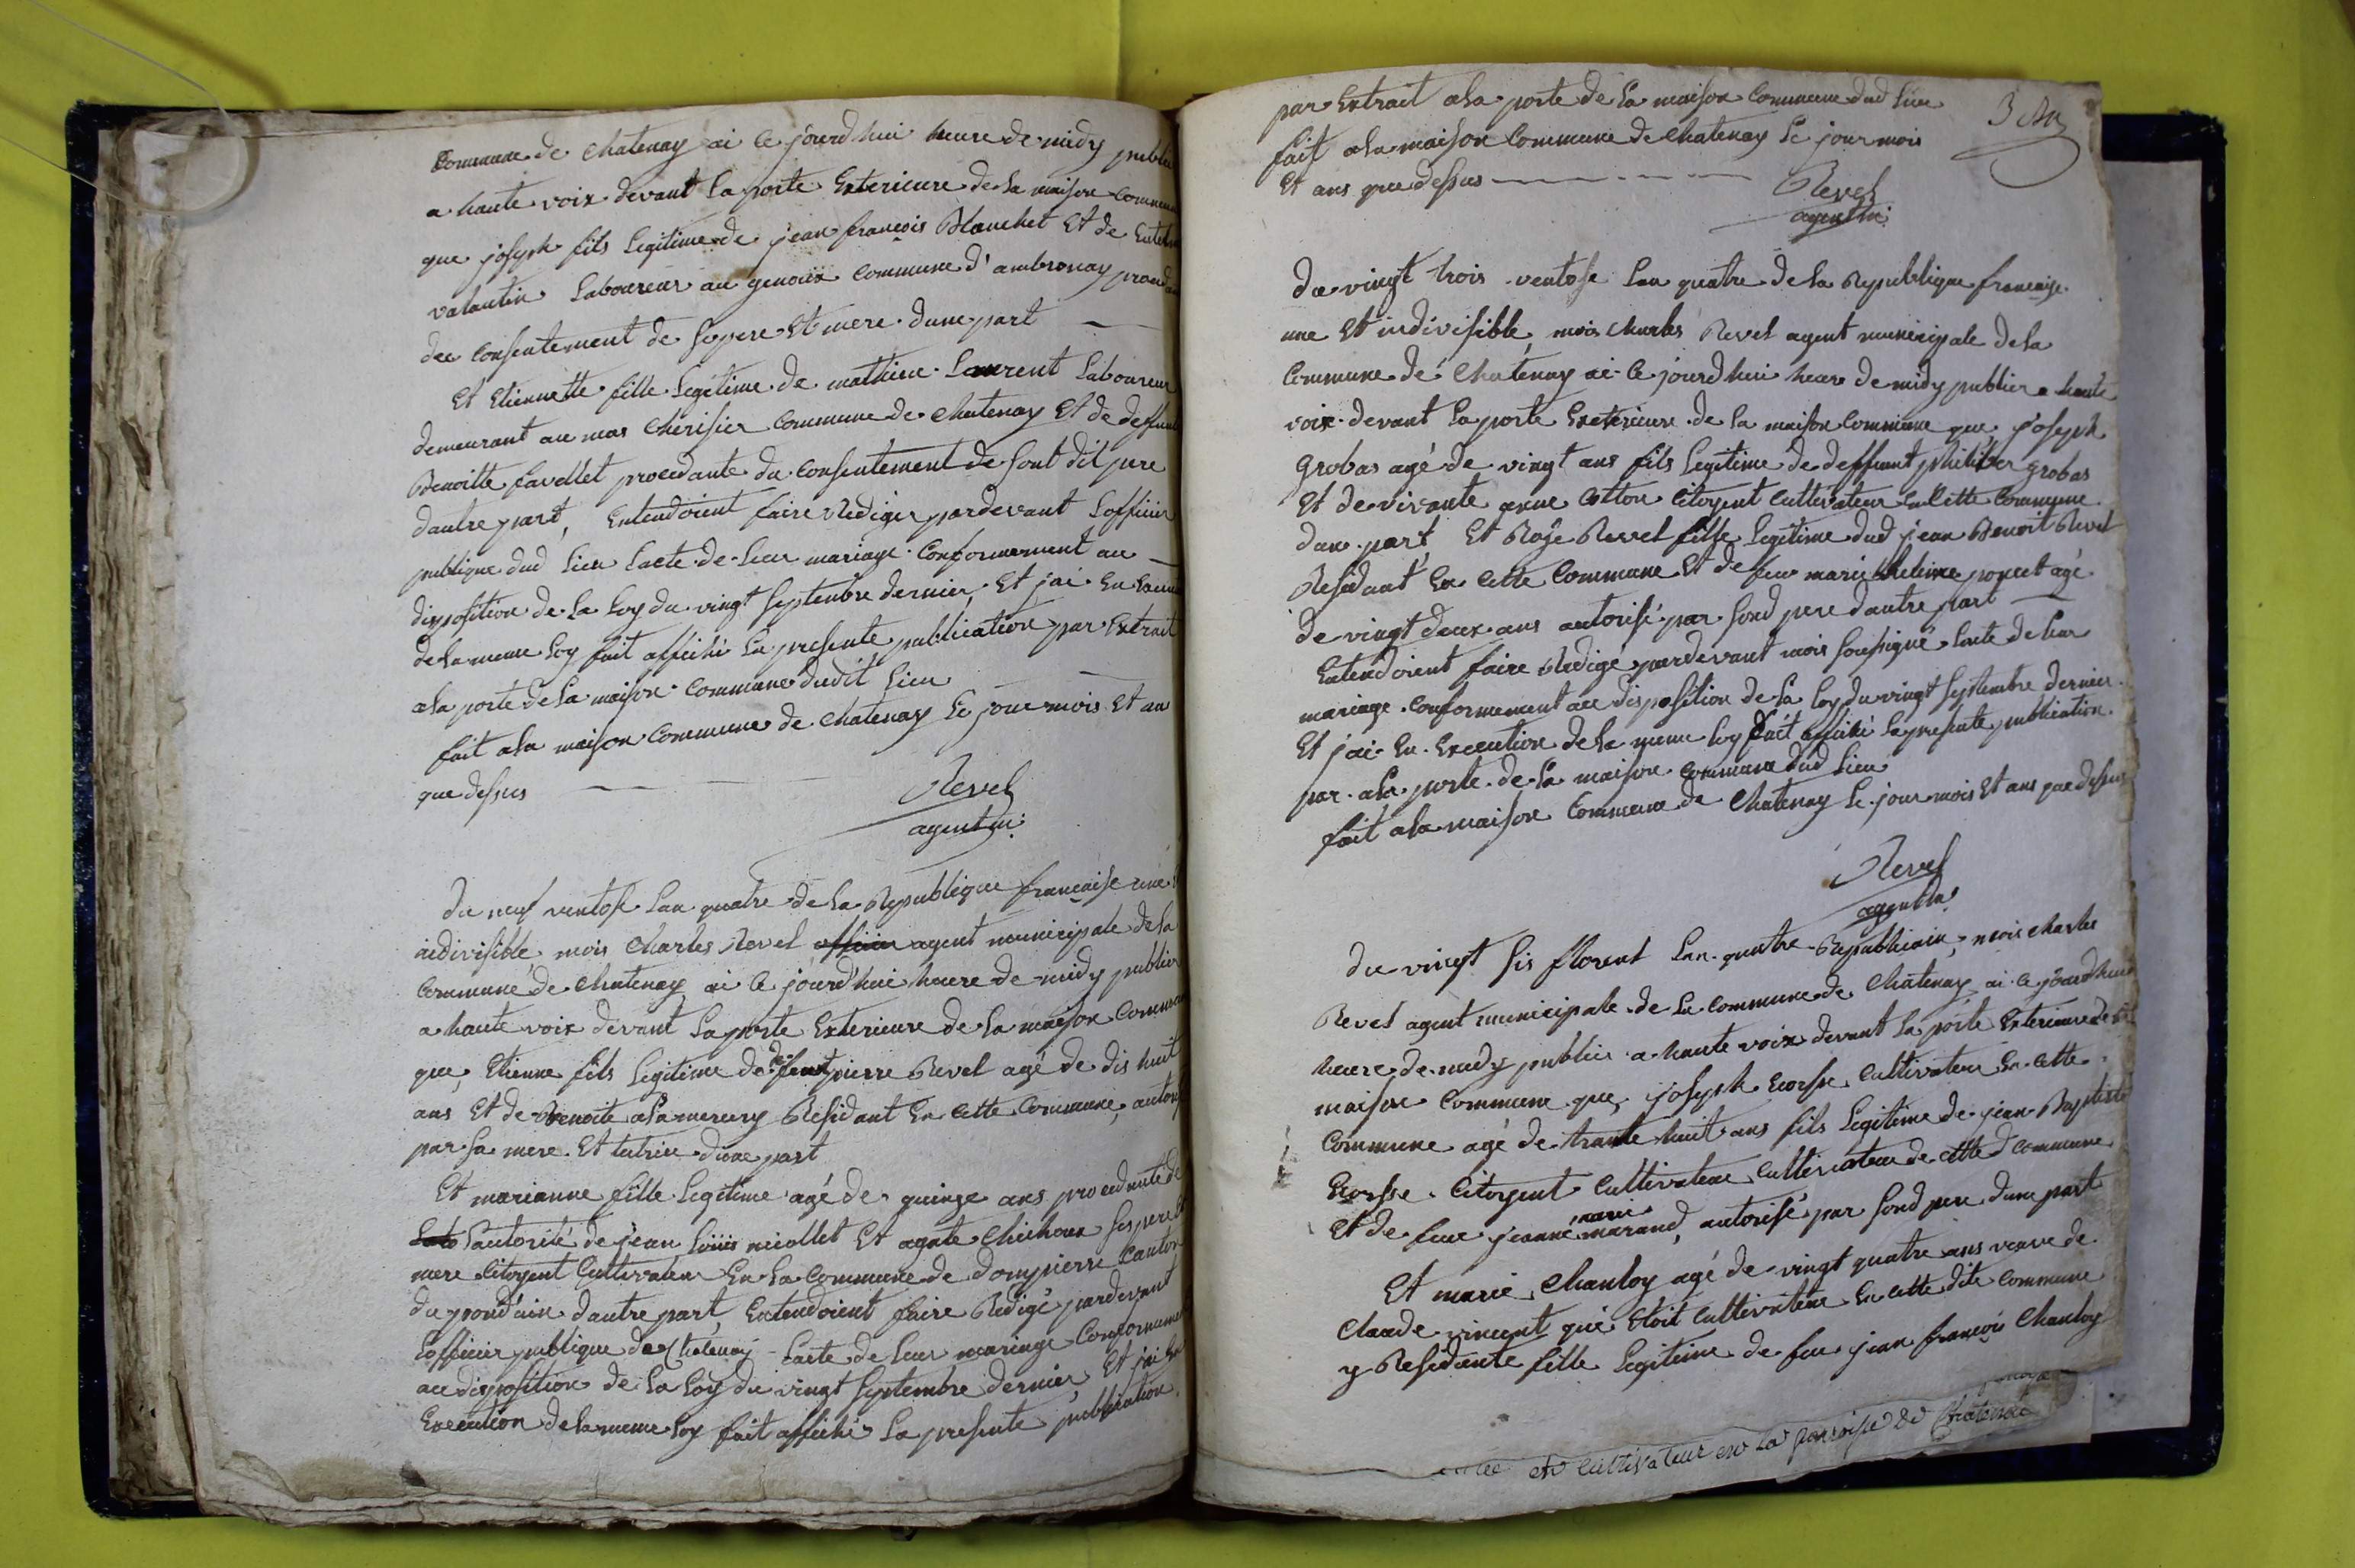 Commune de Chatenay ai ce jourd'hui heure de midy publier
a haute voix devant la porte Exterieure de la maison commune
que joseph fils legitime de jean françois Blanchet Et de
valantin laboureur au genoüx Commune d'ambronay
du Consentement de se pere Et mere dune part
Et Etiennette fille legitime de mathieu Laurent laboureur
demeurant au mas Cherisier Commune de Chatenay Et de deffunte
Benoitte favellet procedante du Consentement de sont dit pere
dautre part, Entendoient faire Rediger pardevant lofficier
publique dud lieu lacte de leur mariage Conformement au
disposition de la loy du vingt septembre dernier, Et jai En
de la meme loy fait affiché la presente publication par Extrait
ala porte de la maison Commune dudit lieu
fait ala maison Commune de Chatenay le jour mois Et an
que dessus
Revel
agent m:
du neuf ventose lan quatre de la Republique française une
indivisible, mois Charles Revel officier agent municipale de la
Commune de Chatenay ai ce jourd'hui heure de midy publier
a haute voix devant la porte Exterieure de la maison Commune
que, Etienne fils legitime de deffeunt pierre Revel agé de dis huit
ans Et de Benoite alamercery Residant En cette Commune,
par sa mere Et tutrice dune part
Et marianne fille legitime agé de quinze ans procedante de
lauto lautorité de jean loüis niollet Et agate Chichoux ses pere
mere Citoyent Cultivateur En la Commune de dompierre Canton
du pondain dautre part, Entendoient faire Redigé pardevant
lofficier publique de Chatenay lacte de leur mariage Conformement
au disposition de la loy du vingt septembre dernier, Et jai En
Execution de la meme loy fait affiché la presente publication
par Extrait ala porte de la maison Commune dud lieu
fait ala maison Commune de Chatenay le jour mois
Et ans que dessus
Revel
agent m:
3
du vingt trois ventose lan quatre de la Republique française
une Et indivisible, mois Charles Revel agent municipale de la
Commune de Chatenay ai ce jourd'hui heure de midy publier a haute
voix devant la porte Exterieure de la maison Commune que joseph
Grobas agé de vingt ans fils legitime de deffeunt philiber grobas
Et de vivante anne Cotton Citoyent Cultivateur En Cette Commune
dune part, Et Roze Revel fille legitime dud jean Benoit Revel
Residant En Cette Commune Et de feue marie poncet agé
de vingt deux ans autorisé par sond pere dautre part
Entendoient faire Redigé pardevant mois sousigné lacte de leur
mariage Conformement au disposition de la loy du vingt septembre dernier
Et j'ai En Execution de la meme loy fait affiché la presente publication
par ala porte de la maison Commune dud lieu
fait ala maison Commune de Chatenay le jour mois Et ans que dessus
Revel
agent m:
du vingt sis floreal lan quatre Republicain, mois Charles
Revel agent municipale de la Commune de Chatenay ai ce jourd'hui
heure de midy publier a haute voix devant la porte Exterieure de
maison Commune que, joseph Ecosse Cultivateur En Cette
Commune agé de trante huit ans fils legitime de jean Baptiste
Ecosse Citoyent Cultivateur Cultivateur de cette d Commune
Et de feue jeanne marie marand, autorisé par sond pere dune part
Et marie Chanloy agé de vingt quatre ans veuve de
Claude vincent qui Etoit Cultivateur En Cette dite Commune
y Residante fille legiteime de feu jean françois Chanloy
cultivateur en la parroisse de Chatenai